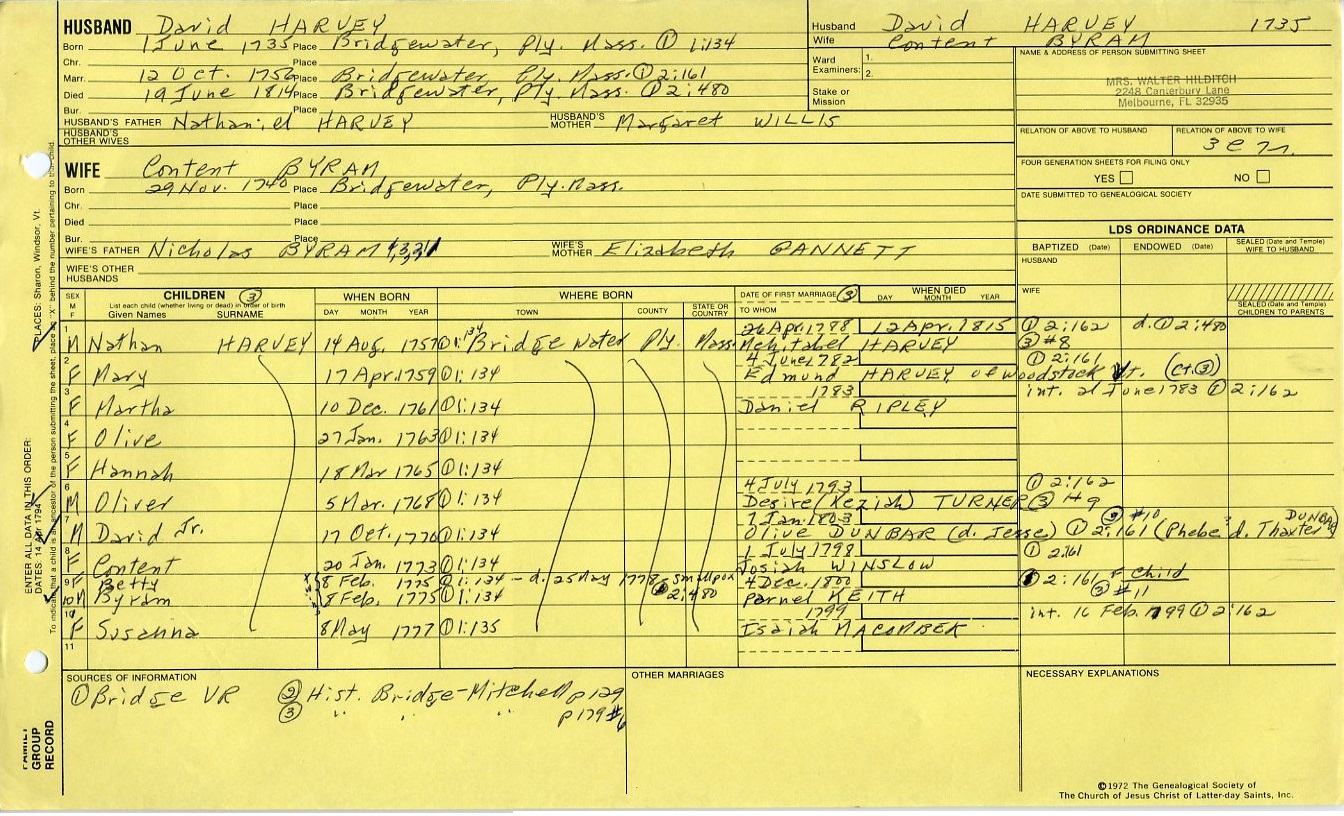 HUSBAND David HARVEY
Born 1 June 1735 Place Bridgewater, Ply. Mass. ① 1:134
Chr. Place
Marr. 12 Oct. 1756 Place Bridgewater, Ply. Mass. ① 2:161
Died 19 June 1814 Place Bridgewater, Ply. Mass. ① 2:480
Bur. Place
HUSBAND'S FATHER Nathaniel HARVEY HUSBAND'S MOTHER Margaret WILLIS
HUSBAND'S OTHER WIVES
Husband David HARVEY 1735
Wife Content BYRAM
Ward Examiners: 1.
2.
Stake or Mission
NAME & ADDRESS OF PERSON SUBMITTING SHEET
MRS. WALTER HILDITCH
2248 Canterbury Lane
Melbourne, FL 32935
RELATION OF ABOVE TO HUSBAND RELATION OF ABOVE TO WIFE
FOUR GENERATION SHEETS FOR FILING ONLY
YES NO
DATE SUBMITTED TO GENEALOGICAL SOCIETY
WIFE Content BYRAM
Born 29 Nov. 1740 Place Bridgewater, Ply. Mass.
Chr. Place
Died Place
Bur. Place
WIFE'S FATHER Nicholas BYRAM WIFE'S MOTHER Elizabeth GANNETT
WIFE'S OTHER HUSBANDS
LDS ORDINANCE DATA
BAPTIZED (Date) ENDOWED (Date) SEALED (Date and Temple) WIFE TO HUSBAND
HUSBAND
WIFE
SEALED (Date and Temple) CHILDREN TO PARENTS
SEX M F CHILDREN ③ WHEN BORN WHERE BORN DATE OF FIRST MARRIAGE ③ WHEN DIED
List each child (whether living or dead) in order of birth
Given Names SURNAME DAY MONTH YEAR TOWN COUNTY STATE OR COUNTRY TO WHOM DAY MONTH YEAR
26 Apr. 1788 12 Apr. 1815 ① 2:162 d. ① 2:480
1 M Nathan HARVEY 14 Aug. 1757 ① 1:134 Bridgewater Ply. Mass. Mehitabel HARVEY ③ #8
4 June 1782 ① 2:161
2 F Mary 17 Apr. 1759 ① 1:134 Edmund HARVEY of Woodstock Vt. (Ct. ③)
1783 int. 21 June 1783 ① 2:162
3 F Martha 10 Dec. 1761 ① 1:134 Daniel RIPLEY
4 F Olive 27 Jan. 1763 ① 1:134
5 F Hannah 18 Mar 1765 ① 1:134
4 July 1793 ① 2:162
6 M Oliver 5 Mar. 1768 ① 1:134 Desire (Keziah) TURNER ③ #9
1 Jan. 1803 #10 DUNBAR
7 M David Jr. 17 Oct. 1770 ① 1:134 Olive DUNBAR (d. Jesse) ① 2:161 (Phebe? d. Thaxter)
1 July 1798 ① 2:161
8 F Content 20 Jan. 1773 ① 1:134 Josiah WINSLOW
9 F Betty 8 Feb. 1775 ① 1:134 - d. 25 May 1778 - smallpox 2:480 4 Dec. 1800 2:161 F Child
10 M Byram 8 Feb. 1775 ① 1:134 Parnel KEITH ③ #11
1799 int. 16 Feb. 1799 ① 2:162
10 F Susanna 8 May 1777 ① 1:135 Isaiah MACOMBER
11
SOURCES OF INFORMATION
① Bridge VR ② Hist. Bridge-Mitchell p 129
③ " " " p 179 #6
OTHER MARRIAGES
NECESSARY EXPLANATIONS
©1972 The Genealogical Society of
The Church of Jesus Christ of Latter-day Saints, Inc.
ENTER ALL DATA IN THIS ORDER:
DATES: 14 Apr 1794
PLACES: Sharon, Windsor, Vt.
To indicate that a child is an ancestor of the person submitting the sheet, place an "X" behind the number pertaining to that child.
FAMILY GROUP RECORD